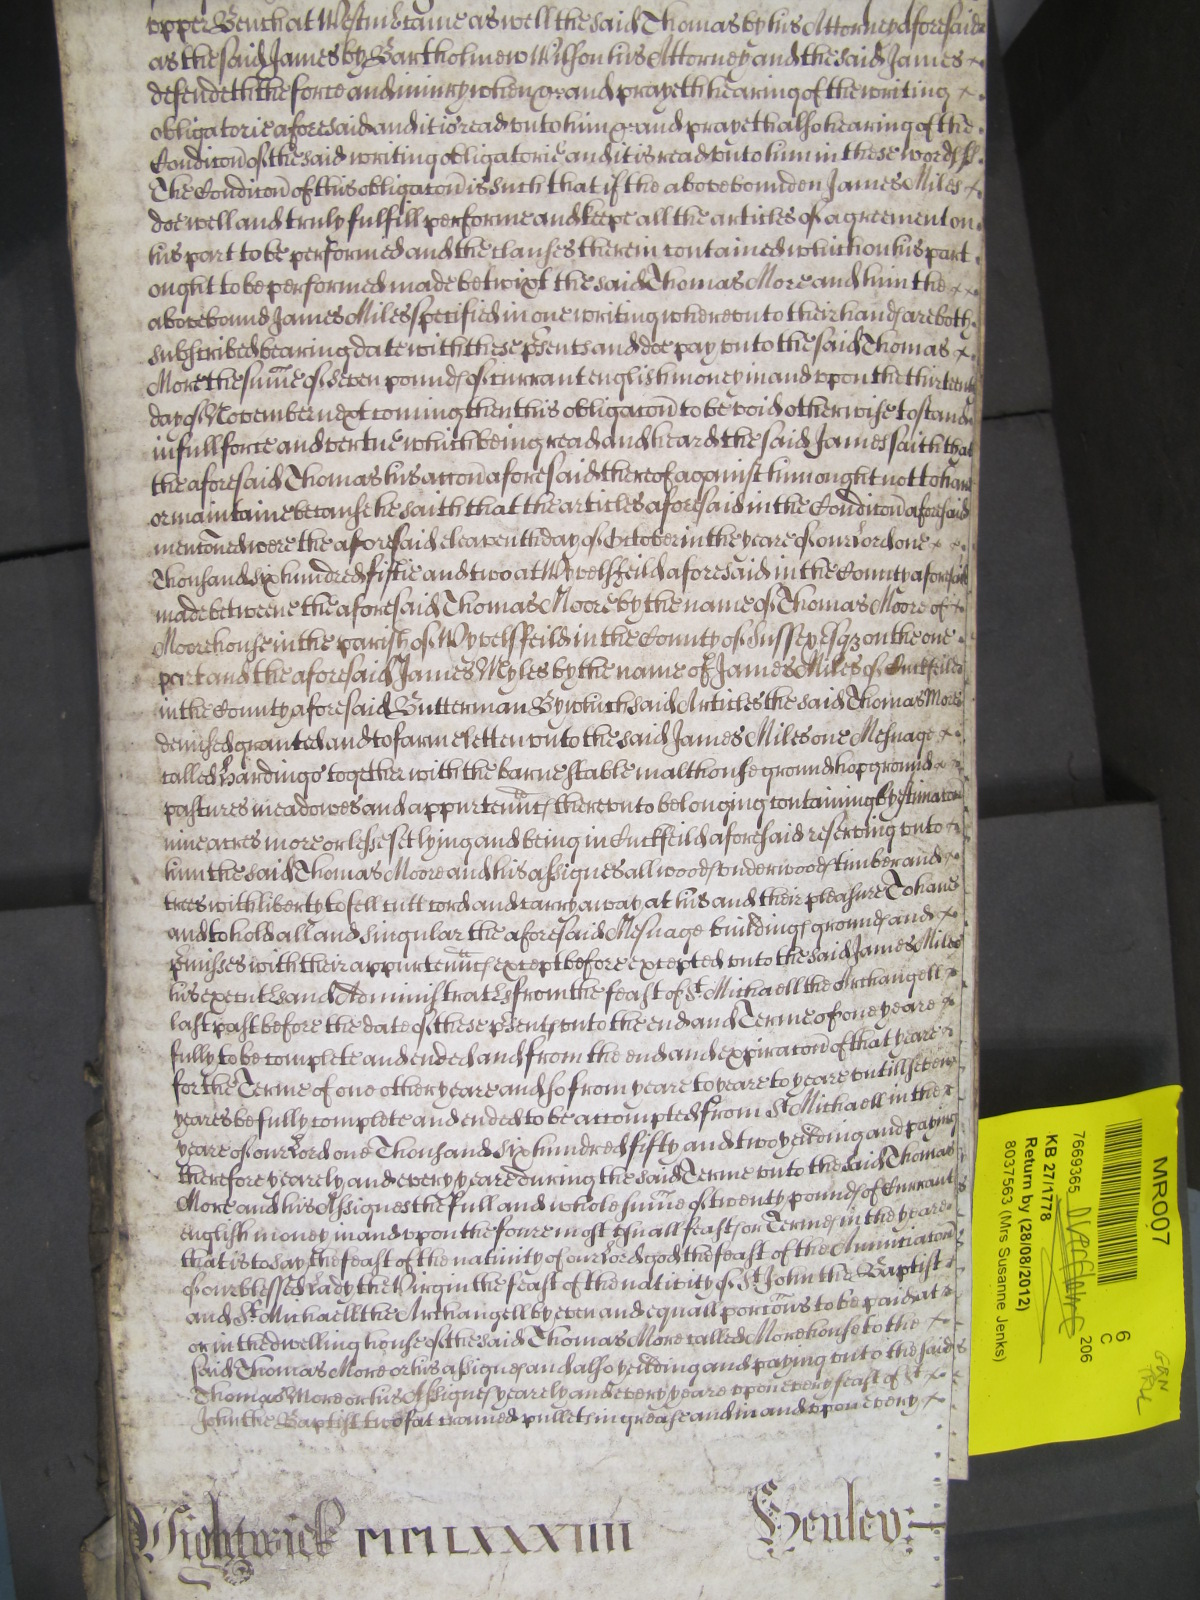 upper Bench at Westm̄ came as well the said Thomas by his Attorney aforesaid
as the said James by Bartholmew Wilson his Attorney and the said James
defendeth the force and iniury when &c and prayeth hearing of the writing
obligatorie aforesaid and it is read unto him &c and prayeth also hearing of the
Condicon̄ of the said writing obligatorie and it is read unto him in these words ss.
The Condicon̄ of this obligacon̄ is such that if the above bounden James Miles
doe well and truly fulfill performe and keepe all the articles of agreement on
his part to be performed and the clauses therein contained which on his part
ought to be performed made betwixt the said Thomas More and him the
above bound James Miles specified in one writing whereunto their hands are both
subscribed bearing date with these p̄sents and doe pay unto the said Thomas
More the sum̄e of seven pounds of currant english money in and upon the thirteenth
day of November next coming then this obligacon̄ to be void otherwise to stand
in full force and vertue which being read and heard the said James saith that
the aforesaid Thomas his accon̄ aforesaid thereof against him ought not to have
or maintaine because he saith that the articles aforesaid in the Condicon̄ aforesaid
menconed were the aforesaid eleaventh day of October in the yeare of our Lord one
Thousand six hundred fiftie and two at Wyvelsfeild aforesaid in the County aforesaid
made betweene the aforesaid Thomas Moore by the name of Thomas Moore of
Moorehouse in the parish of Wyvelsfeild in the County of Sussex Esqz on the one
part and the aforesaid James Myles by the name of James Miles of Cuckfeild
in the County aforesaid Butterman By which said Articles the said Thomas More
demised granted and to farme letten unto the said James Miles one Mesuage
called Hardings together with the barne stable malthouse ground hopground
pastures meadowes and appurten̄nc̄ thereunto belonging containing by estimacon
nine acres more or lesse set lying and being in Cuckfeild aforesaid reserving unto
him the said Thomas Moore and his assignes all woods underwoods timber and
trees with liberty to fell cutt cord and carry away at his and their pleasure To have
and to hold all and singular the aforesaid Mesuage buildings grounds and
p̄misses with their appurten̄nc̄ except before excepted unto the said James Miles
his executrs and Administratrs from the feast of St Michaell the Archangell
last past before the date of these p̄sents unto the end and Terme of one yeare
fully to be complete and ended and from the end and expiracon̄ of that yeare
for the Terme of one other yeare and so from yeare to yeare to yeare untill seven
yeares be fully complete and ended to be accompted from St Michaell in the
yeare of our Lord one Thousand six hundred fifty and two yeilding and paying
therefore yearely and every yeare during the said Terme unto the said Thomas
More and his Assignes the full and whole sum̄e of twenty pounds of Currant
english money in and upon the foure most usuall feasts or Termes in the yeare
that is to say the feast of the nativity of our Lord god the feast of the Annunciacon̄
of our blessed Lady the Virgin the feast of the nativity of St John the Baptist
and St Michaell the Archangell by even and equall porcon̄s to be paid at
or in the dwelling house of the said Thomas More called Morehouse to the
said Thomas More or his assignes and also yeilding and paying unto the said
Thomas More or his Assignes yearely and every yeare upon every feast of St
John the Baptist two fat cramed pullets in grease and in and upon every
Wightwick MCMLXXXIIII Henley
MRO07
6
C
206
7669365
KB 27/1778
Return by (28/08/2012)
8037563 (Mrs Susanne Jenks)